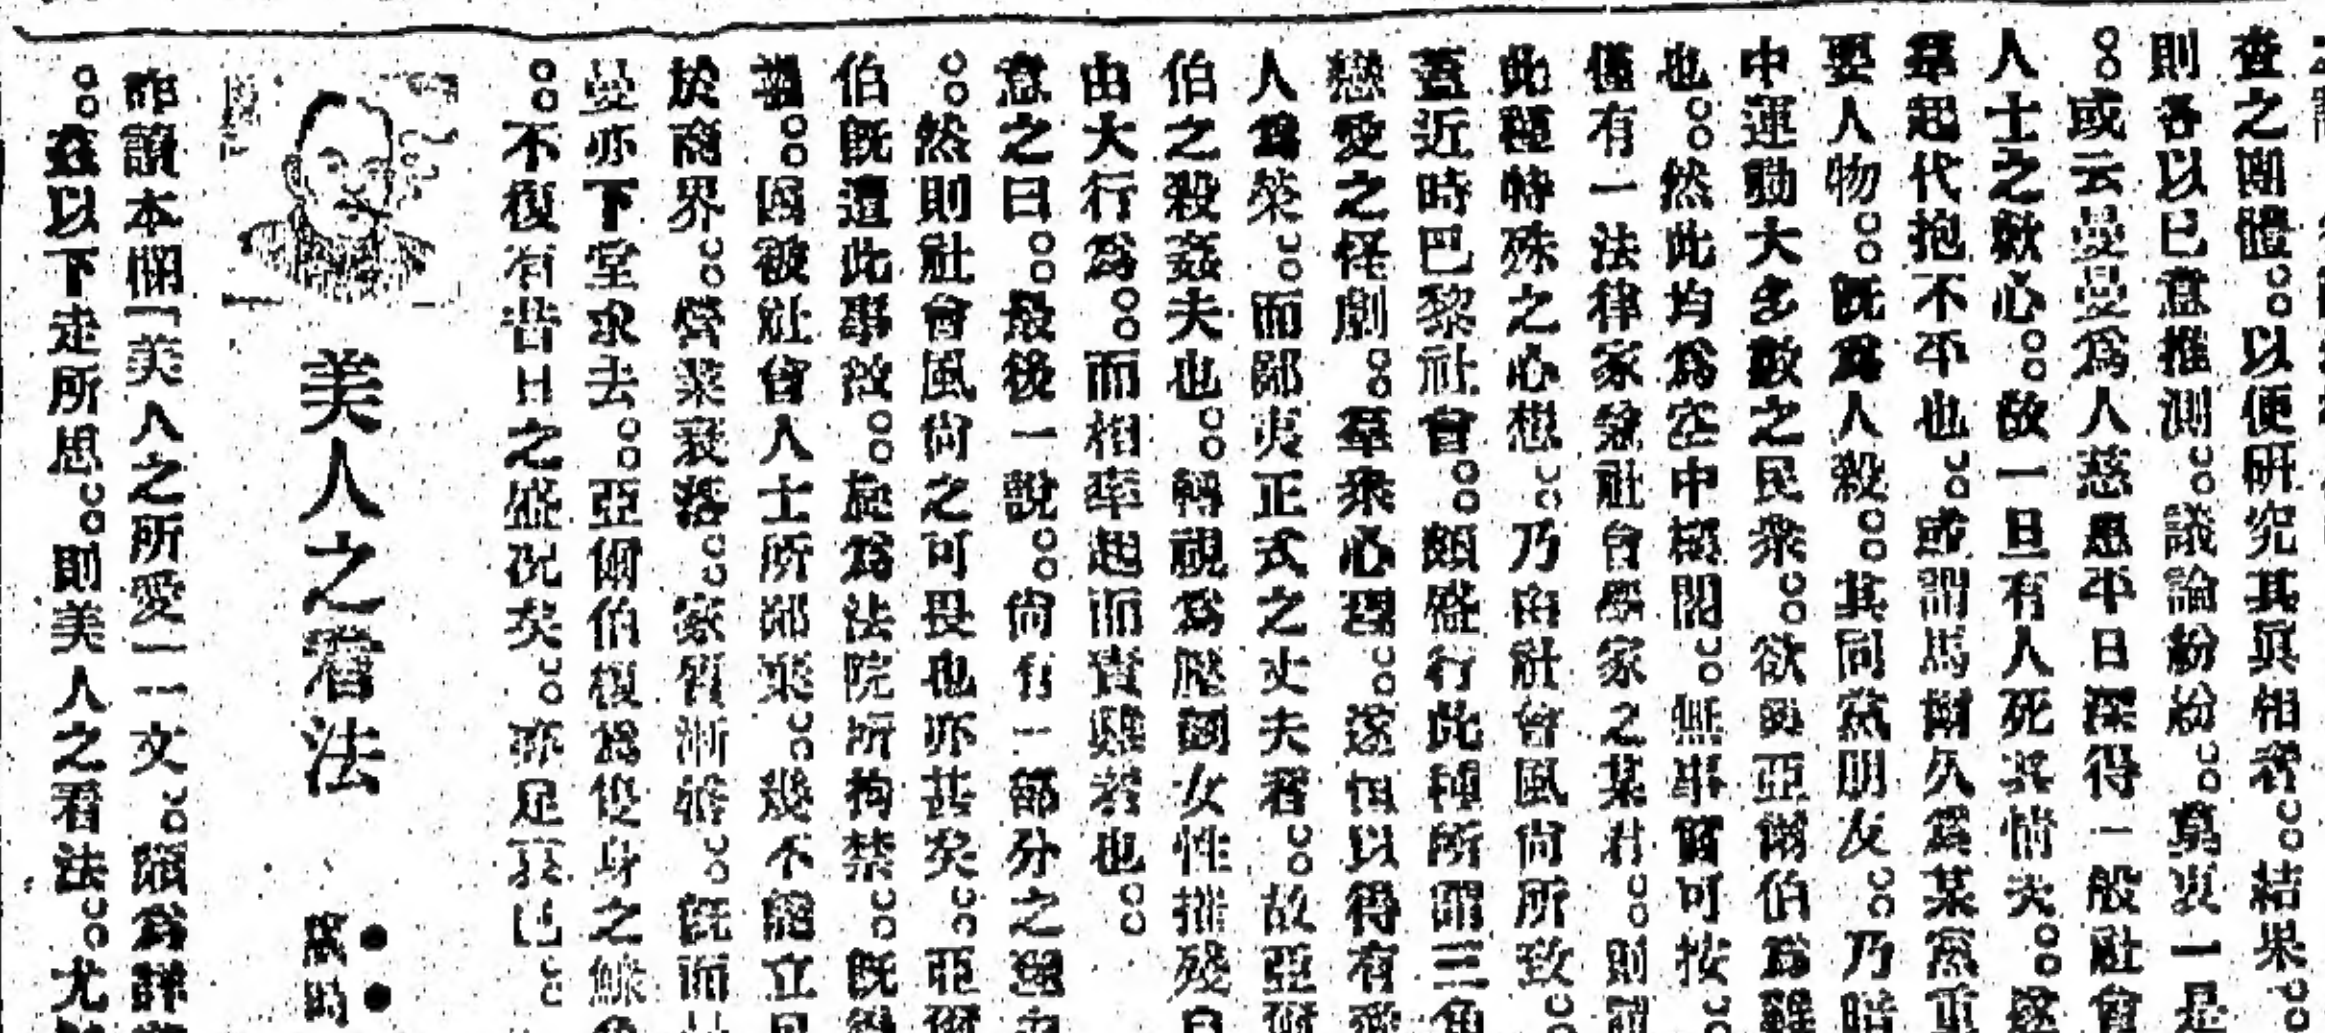 查之團體。以便研究其真相者。結果。
則各以已意推測。議論紛紛。莫衷一是
。或云曼曼為人慈愚平日深得一般社會
人士之歡心。故一旦有人死其情夫。
羣起代抱不平也。或謂馬爾久為某黨重
要人物。既為人殺。其同黨朋友。乃暗
中運動大多數之民衆。欲與亞爾伯為難
也。然此均為空中樓閣。無事實可按。
僅有一法律家兼社會學家之某君。則謂
此種特殊之心想。乃由社會風尚所致。
蓋近時巴黎社會。頗盛行此種所謂三角
戀愛之怪劇。羣衆心理。遂怛以得有愛
人為榮。而鄙夷正式之丈夫者。故亞爾
伯之殺姦夫也。轉視為壓倒女性摧殘自
由大行為。而相率起而責難者也。
意之曰。最後一說。尚有一部分之理由
。然則社會風尚之可畏也亦甚矣。亞爾
伯既遭此事故。旋為法院所拘禁。既得
。國被社會人士所鄙棄。幾不能立足
於商界。營業衰落。家質漸。既而
曼亦下堂求去。亞爾伯復為隻身之鰥
。不復有昔日之盛況矣。亦足哀已。
美人之看法
昨讀本欄「美人之所愛」一文。頗為詳
。茲以下走所思。則美人之看法。尤